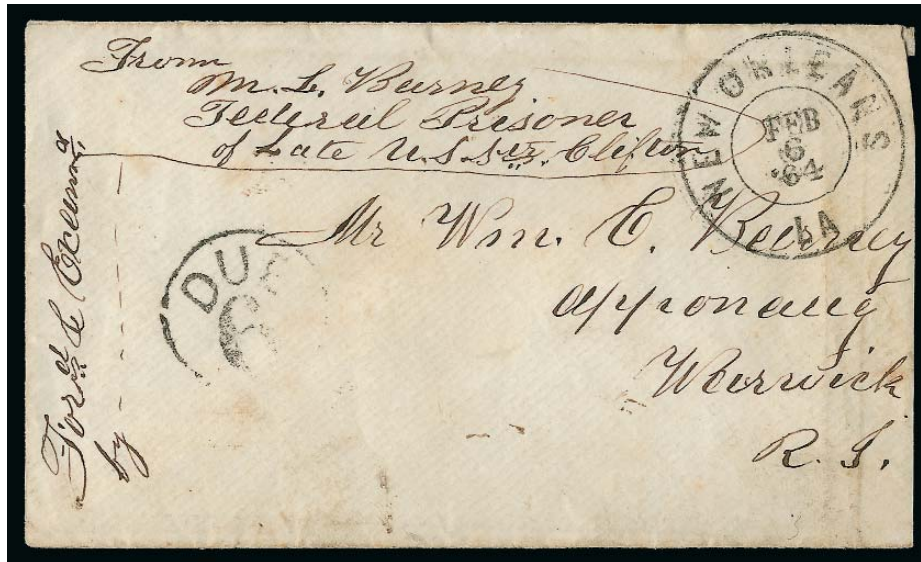 From
Wm. L. Burney
Federal Prisoner
of Late U.S. Str. Clifton
NEW ORLEANS
FEB
6
'64
LA
Mr Wm. C. Burney
Apponaug
Warwick
R. I.
DUE
Forwd & Examd
by